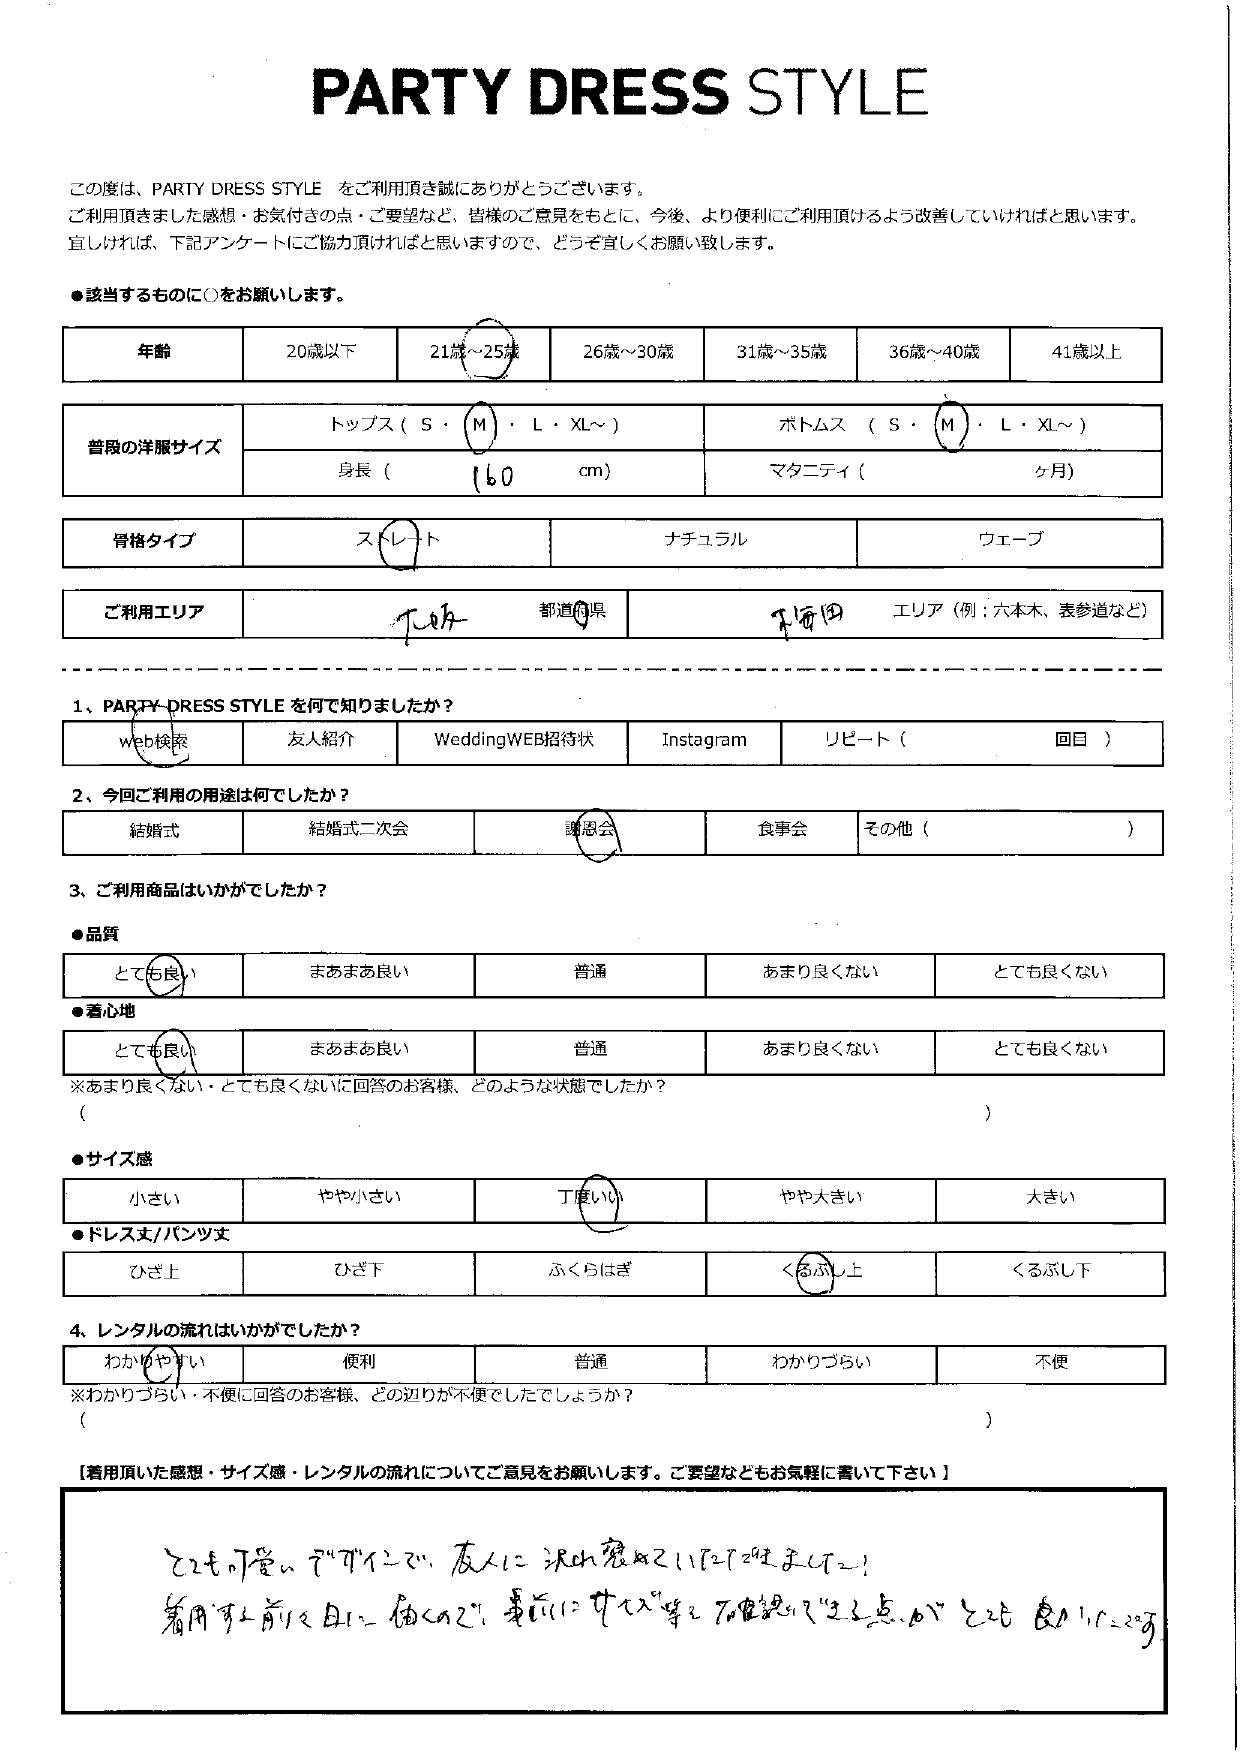 PARTY DRESS STYLE
この度は、PARTY DRESS STYLE をご利用頂き誠にありがとうございます。
ご利用頂きました感想・お気付きの点・ご要望など、皆様のご意見をもとに、今後、より便利にご利用頂けるよう改善していければと思います。
宜しければ、下記アンケートにご協力頂ければと思いますので、どうぞ宜しくお願い致します。
●該当するものに○をお願いします。
年齢 20歳以下 21歳～25歳 26歳～30歳 31歳～35歳 36歳～40歳 41歳以上
普段の洋服サイズ トップス ( S ・ M ・ L ・ XL～ ) ボトムス ( S ・ M ・ L ・ XL～ )
身長 ( 160 cm) マタニティ ( ヶ月)
骨格タイプ ストレート ナチュラル ウェーブ
ご利用エリア 大阪 都道府県 梅田 エリア（例：六本木、表参道など）
1、PARTY DRESS STYLE を何で知りましたか？
web検索 友人紹介 WeddingWEB招待状 Instagram リピート ( 回目 )
2、今回ご利用の用途は何でしたか？
結婚式 結婚式二次会 謝恩会 食事会 その他 ( )
3、ご利用商品はいかがでしたか？
●品質
とても良い まあまあ良い 普通 あまり良くない とても良くない
●着心地
とても良い まあまあ良い 普通 あまり良くない とても良くない
※あまり良くない・とても良くないに回答のお客様、どのような状態でしたか？
( )
●サイズ感
小さい やや小さい 丁度いい やや大きい 大きい
●ドレス丈/パンツ丈
ひざ上 ひざ下 ふくらはぎ くるぶし上 くるぶし下
4、レンタルの流れはいかがでしたか？
わかりやすい 便利 普通 わかりづらい 不便
※わかりづらい・不便に回答のお客様、どの辺りが不便でしたでしょうか？
( )
【着用頂いた感想・サイズ感・レンタルの流れについてご意見をお願いします。ご要望などもお気軽に書いて下さい 】
とても可愛いデザインで、友人に沢山褒めていただきました！
着用する前々日に届くので、事前にサイズ等を確認できる点がとても良かったです